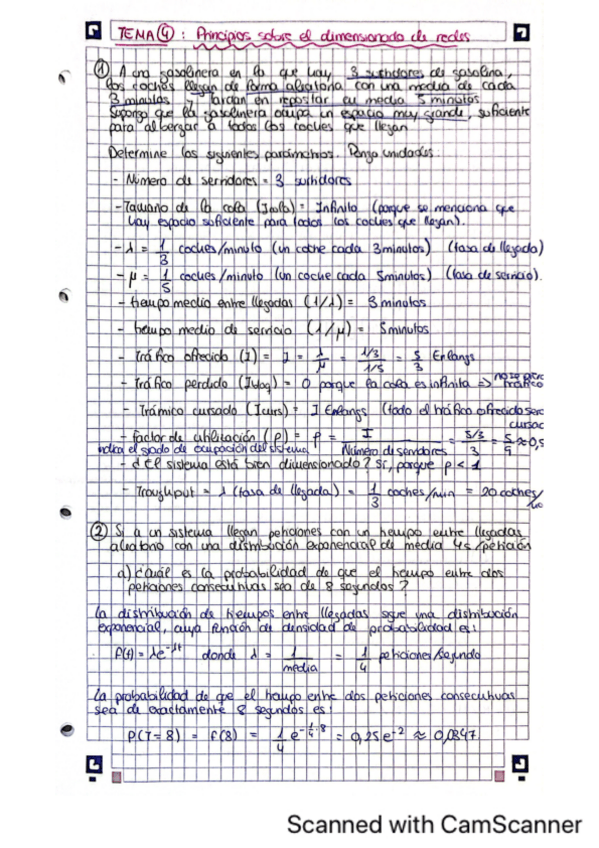 TEMA ④: Principios sobre el dimensionado de redes
① A una gasolinera en la que hay 3 surtidores de gasolina,
los coches llegan de forma aleatoria con una media de cada
3 minutos y tardan en repostar en media 5 minutos.
Suponga que la gasolinera ocupa un espacio muy grande, suficiente
para albergar a todos los coches que llegan.
Determine los siguientes parámetros. Ponga unidades:
- Número de servidores = 3 surtidores
- Tamaño de la cola = Infinito (porque se menciona que
hay espacio suficiente para todos los coches que llegan).
- λ = 1/3 coches/minuto (un coche cada 3 minutos) (tasa de llegada)
- μ = 1/5 coches/minuto (un coche cada 5 minutos) (tasa de servicio).
- tiempo medio entre llegadas (1/λ) = 3 minutos
- tiempo medio de servicio (1/μ) = 5 minutos
- Tráfico ofrecido (I) = I = λ/μ = (1/3)/(1/5) = 5/3 Erlangs
- Tráfico perdido = 0 porque la cola es infinita => no se
tráfico
- Trámico cursado (Icurs) = I Erlangs (todo el tráfico ofrecido
cursac
- factor de utilización (ρ) = ρ = I/Número de servidores = (5/3)/3 = 5/9 ≈ 0,5
indica el grado de ocupación del sistema
- ¿El sistema está bien dimensionado? Sí, porque ρ < 1
- Troughput = λ (tasa de llegada) = 1/3 coches/min = 20 coches/
② Si a un sistema llegan peticiones con un tiempo entre llegadas
aleatorio con una distribución exponencial de media 4s/petición
a) ¿Cuál es la probabilidad de que el tiempo entre dos
peticiones consecutivas sea de 8 segundos?
La distribución de tiempos entre llegadas sigue una distribución
exponencial, cuya función de densidad de probabilidad es:
f(t) = λe^-λt donde λ = 1/media = 1/4 peticiones/segundo
La probabilidad de que el tiempo entre dos peticiones consecutivas
sea de exactamente 8 segundos es:
P(T=8) = f(8) = 1/4 e^-1/4·8 = 0,25e^-2 ≈ 0,0347
Scanned with CamScanner